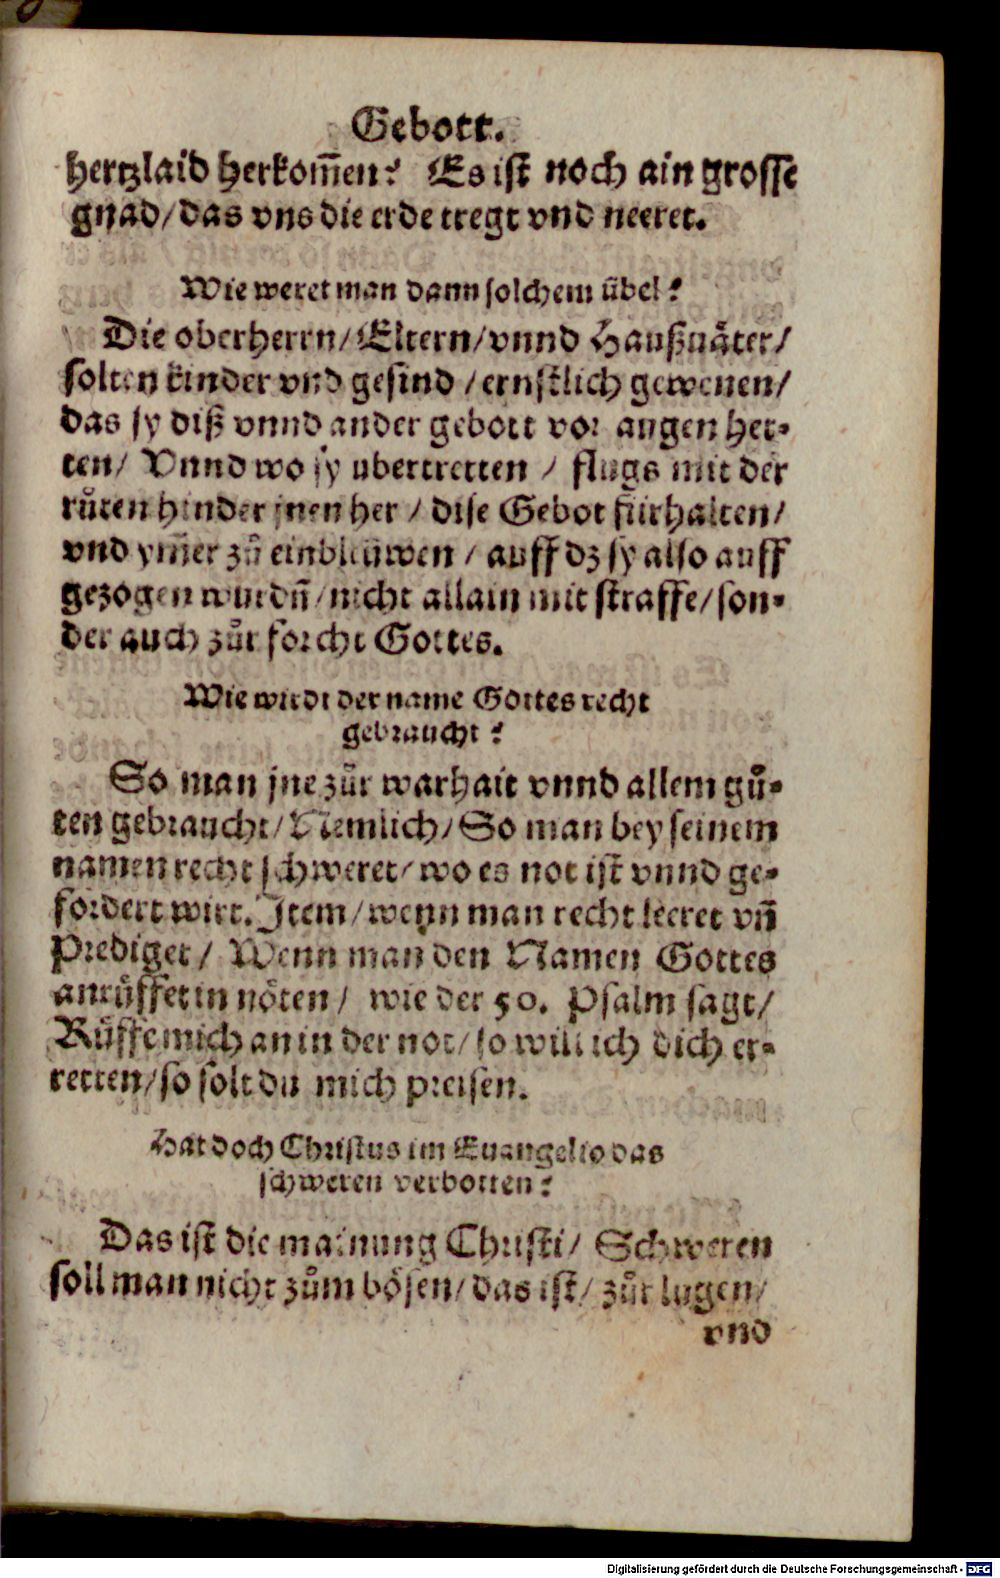 Gebott.
hertzlaid herkom̃en? Es ist noch ain grosse
gnad/das vns die erde tregt vnd neeret.
Wie weret man dann solchem übel?
Die oberherrn/Eltern/vnnd Haußuäter/
solten kinder vnd gesind/ernstlich gewenen/
das sy diß vnnd ander gebott vor augen het-
ten/ Vnnd wo sy ubertretten / flugs mit der
růten hinder jnen her / dise Gebot fürhalten/
vnd ym̃er zů einbleüwen / auff dz sy also auff
gezogen wurdñ/nicht allain mit straffe/son-
der auch zůr forcht Gottes.
Wie wirdt der name Gottes recht
gebraucht?
So man jne zůr warhait vnnd allem gů-
ten gebraucht/Nemlich/So man bey seinem
namen recht schweret/wo es not ist vnnd ge-
fordert wirt. Item/wenn man recht leeret vñ
Prediget/ Wenn man den Namen Gottes
anrůffet in nöten/ wie der 50. Psalm sagt/
Růffe mich an in der not/so will ich dich er-
retten/so solt du mich preisen.
Hat doch Christus im Euangelio das
schweren verbotten?
Das ist die mainung Christi/ Schweren
soll man nicht zům bösen/das ist/ zůr lugen/
vnd
Digitalisierung gefördert durch die Deutsche Forschungsgemeinschaft - DFG